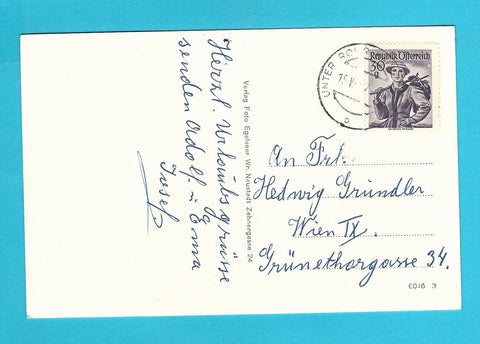 Herzl. Urlaubsgrüsse
senden Adolf. u. Erna
Josef
Verlag Foto Egelseer Wr. Neustadt Zehnergasse 24
UNTER
Republik Österreich
30
g
An Frl.
Hedwig Gründler
Wien IX.
Grünethorgasse 34.
6046 3